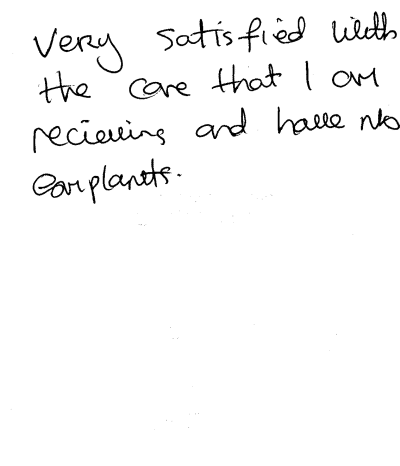 Very satisfied with
the care that I am
recieving and have no
complants.